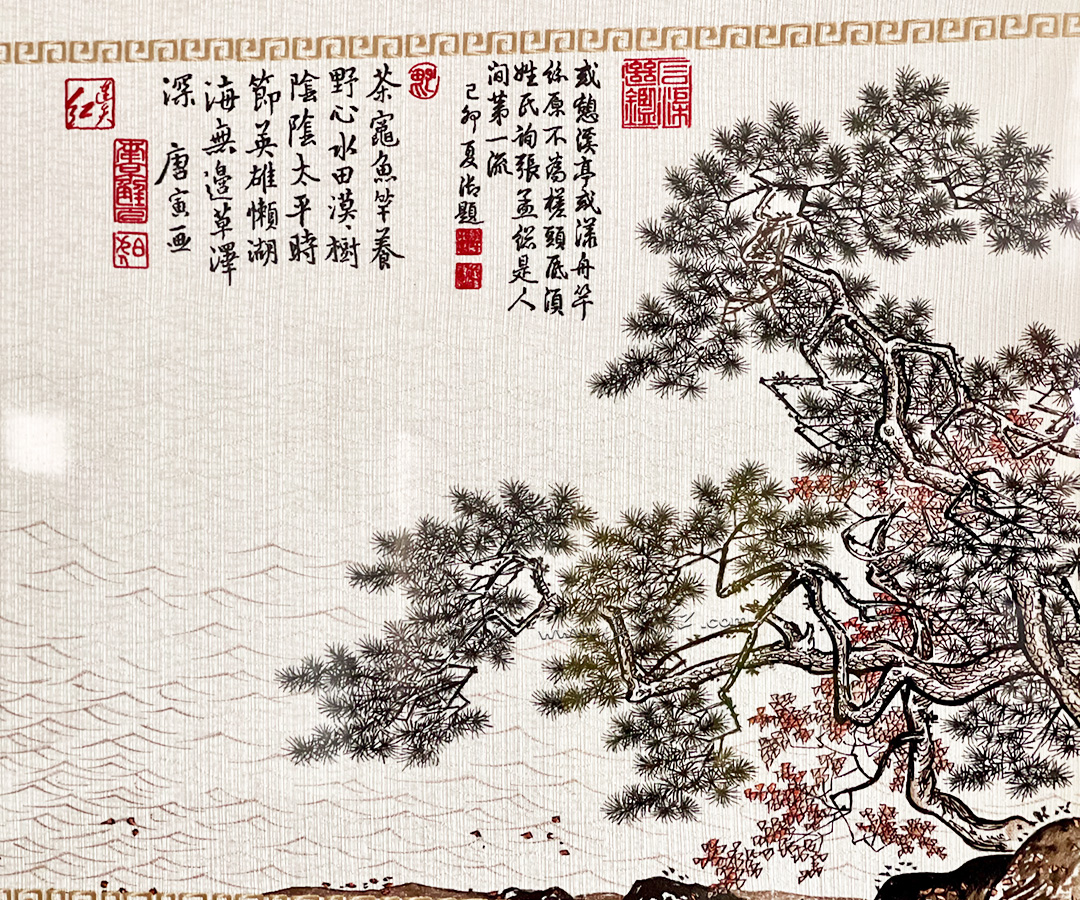 或憩溪亭或漾舟竿
絲原不為槎頭底須
姓氏詢張孟總是人
間第一流
己卯夏御題
茶竈魚竿養
野心水田漠漠樹
陰陰太平時
節英雄懶湖
海無邊草澤
深 唐寅畫
www.
.com